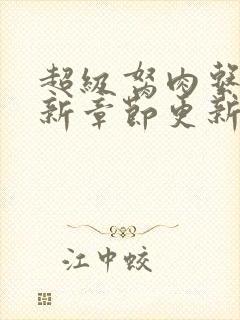 超級胬肉繫
新章節更新
江中蛟